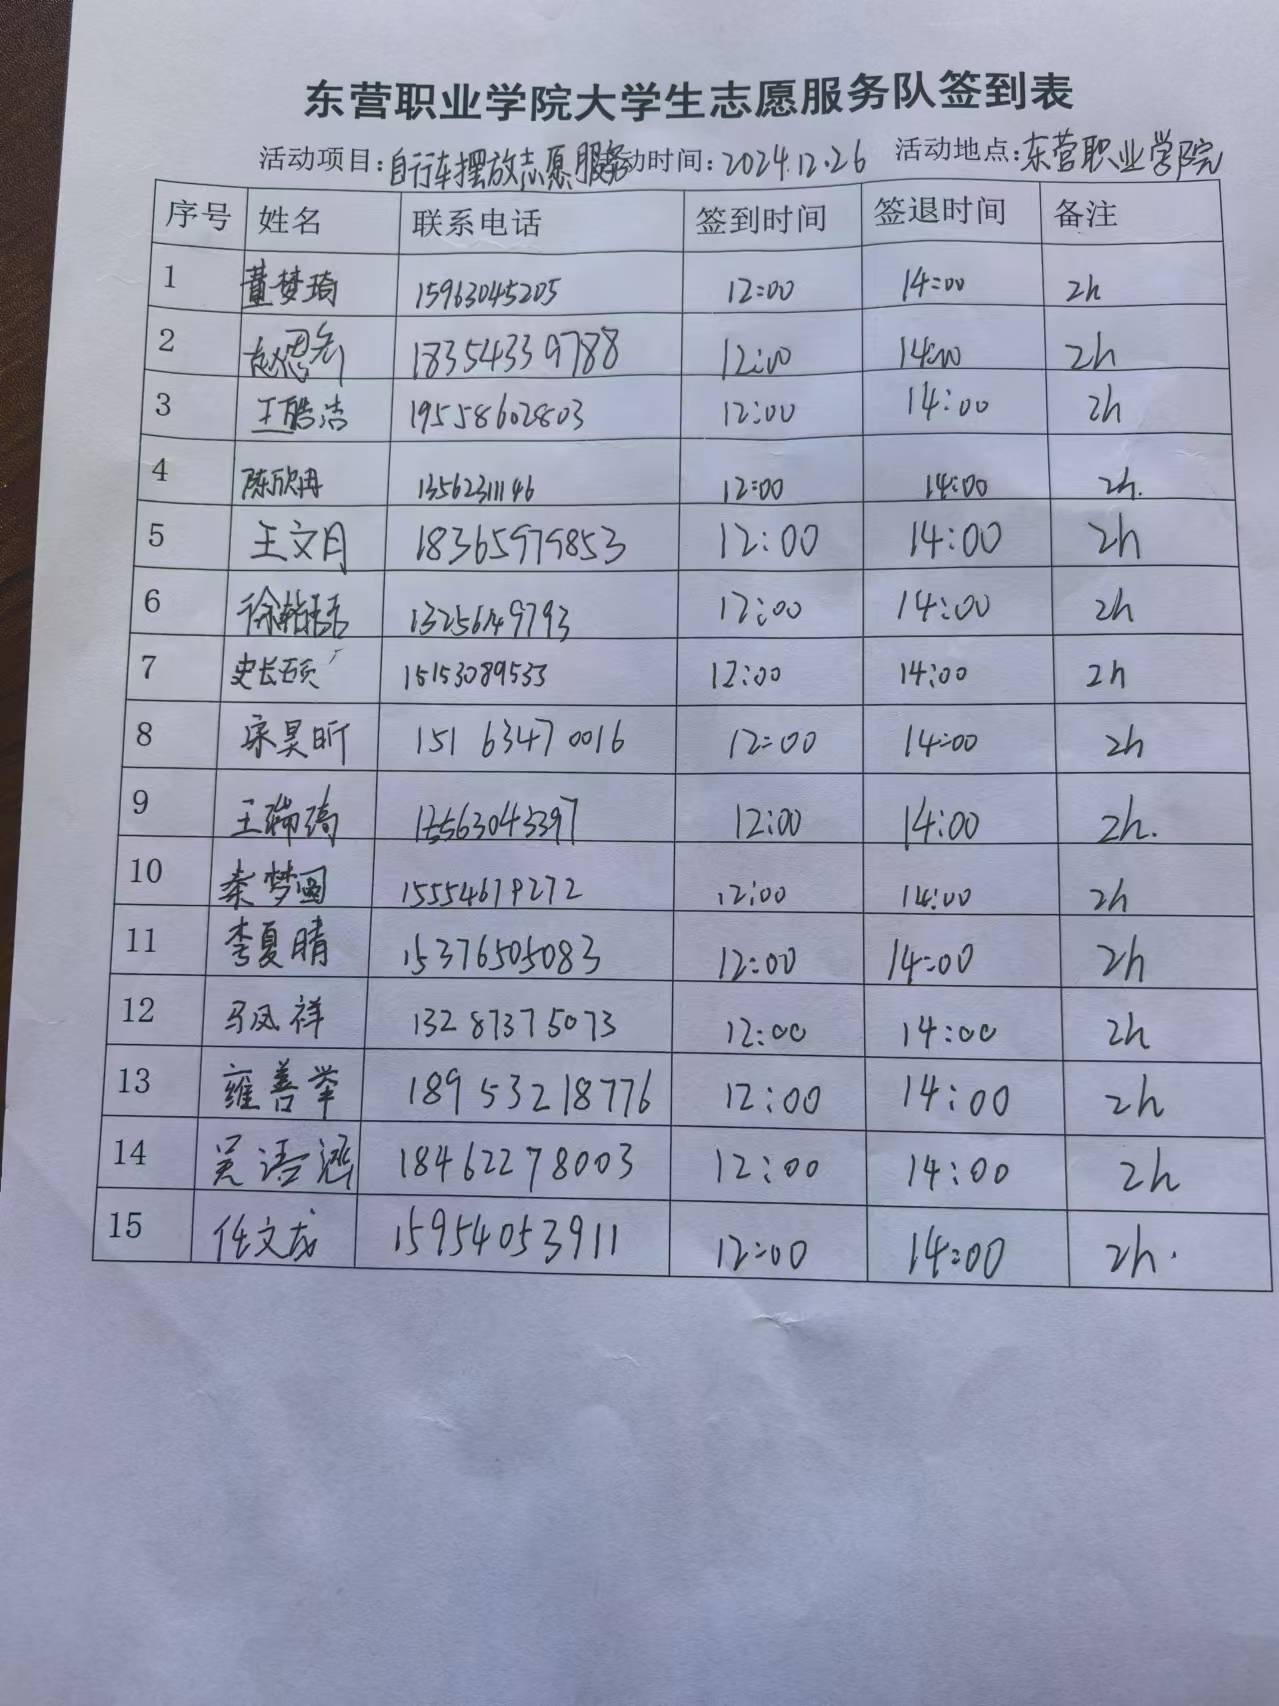 东营职业学院大学生志愿服务队签到表
活动项目:自行车摆放志愿服务动时间:2024.12.26 活动地点:东营职业学院
序号 姓名 联系电话 签到时间 签退时间 备注
1 董梦琦 15963045205 12:00 14:00 2h
2 18354339788 12:00 14:00 2h
3 王皓洁 19558602803 12:00 14:00 2h
4 陈欣冉 13562311146 12:00 14:00 2h.
5 王文月 18365979853 12:00 14:00 2h
6 13256149793 12:00 14:00 2h
7 史长硕 15153089533 12:00 14:00 2h
8 宋昊昕 151 6347 0016 12:00 14:00 2h
9 王瑞琦 12:00 14:00 2h.
10 秦梦圆 15554679272 12:00 14:00 2h
11 李夏晴 15376505083 12:00 14:00 2h
12 马凤祥 13287375073 12:00 14:00 2h
13 雍善举 18953218776 12:00 14:00 2h
14 吴语涵 18462278003 12:00 14:00 2h
15 任文成 15954053911 12:00 14:00 2h.